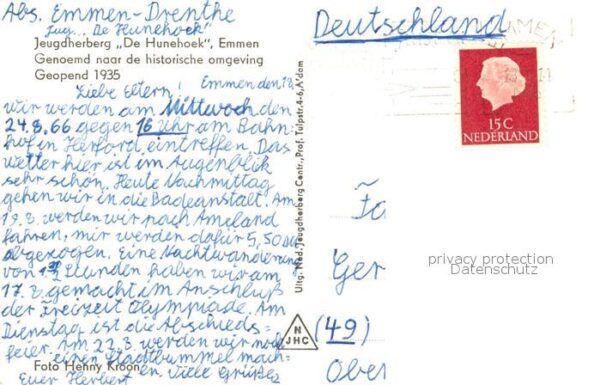 Abs. Emmen-Drenthe
Jug. "De Hunehoek"
Jeugdherberg „De Hunehoek", Emmen
Genoemd naar de historische omgeving
Geopend 1935
Emmen den 18.
Liebe Eltern!
wir werden am Mittwoch den
24.8.66 gegen 16 Uhr am Bahn-
hof in Herford eintreffen. Das
Wetter hier ist im Augenblik
sehr schön. Heute Nachmittag
gehen wir in die Badeanstalt. Am
19.8. werden wir nach Ameland
fahren, mir werden dafür 5,50 DM
abgezogen. Eine Nachtwanderung
von Stunden haben wir am
17.8. gemacht im Anschluß
der Freizeit Olympiade. Am
Dienstag ist die Abschieds-
feier. Am 22.8. werden wir noch
einen Stadtbummel mach-
en. Viele Grüße
Euer Herbert
Foto Henny Kroon
Uitg. Ned. Jeugdherberg Centr., Prof. Tulpstr. 4-6, A'dam
N
JHC
Deutschland
15C
NEDERLAND
Fa
Ger
(49)
Ober
privacy protection
Datenschutz